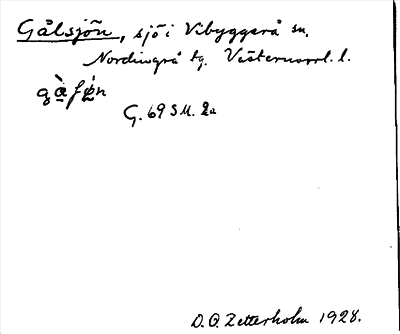 Gålsjön, sjö i Vibyggerå sn.
Nordingrå tg. Västernorrl. l.
G. 69 SM. 2a
D. O. Zetterholm 1928.